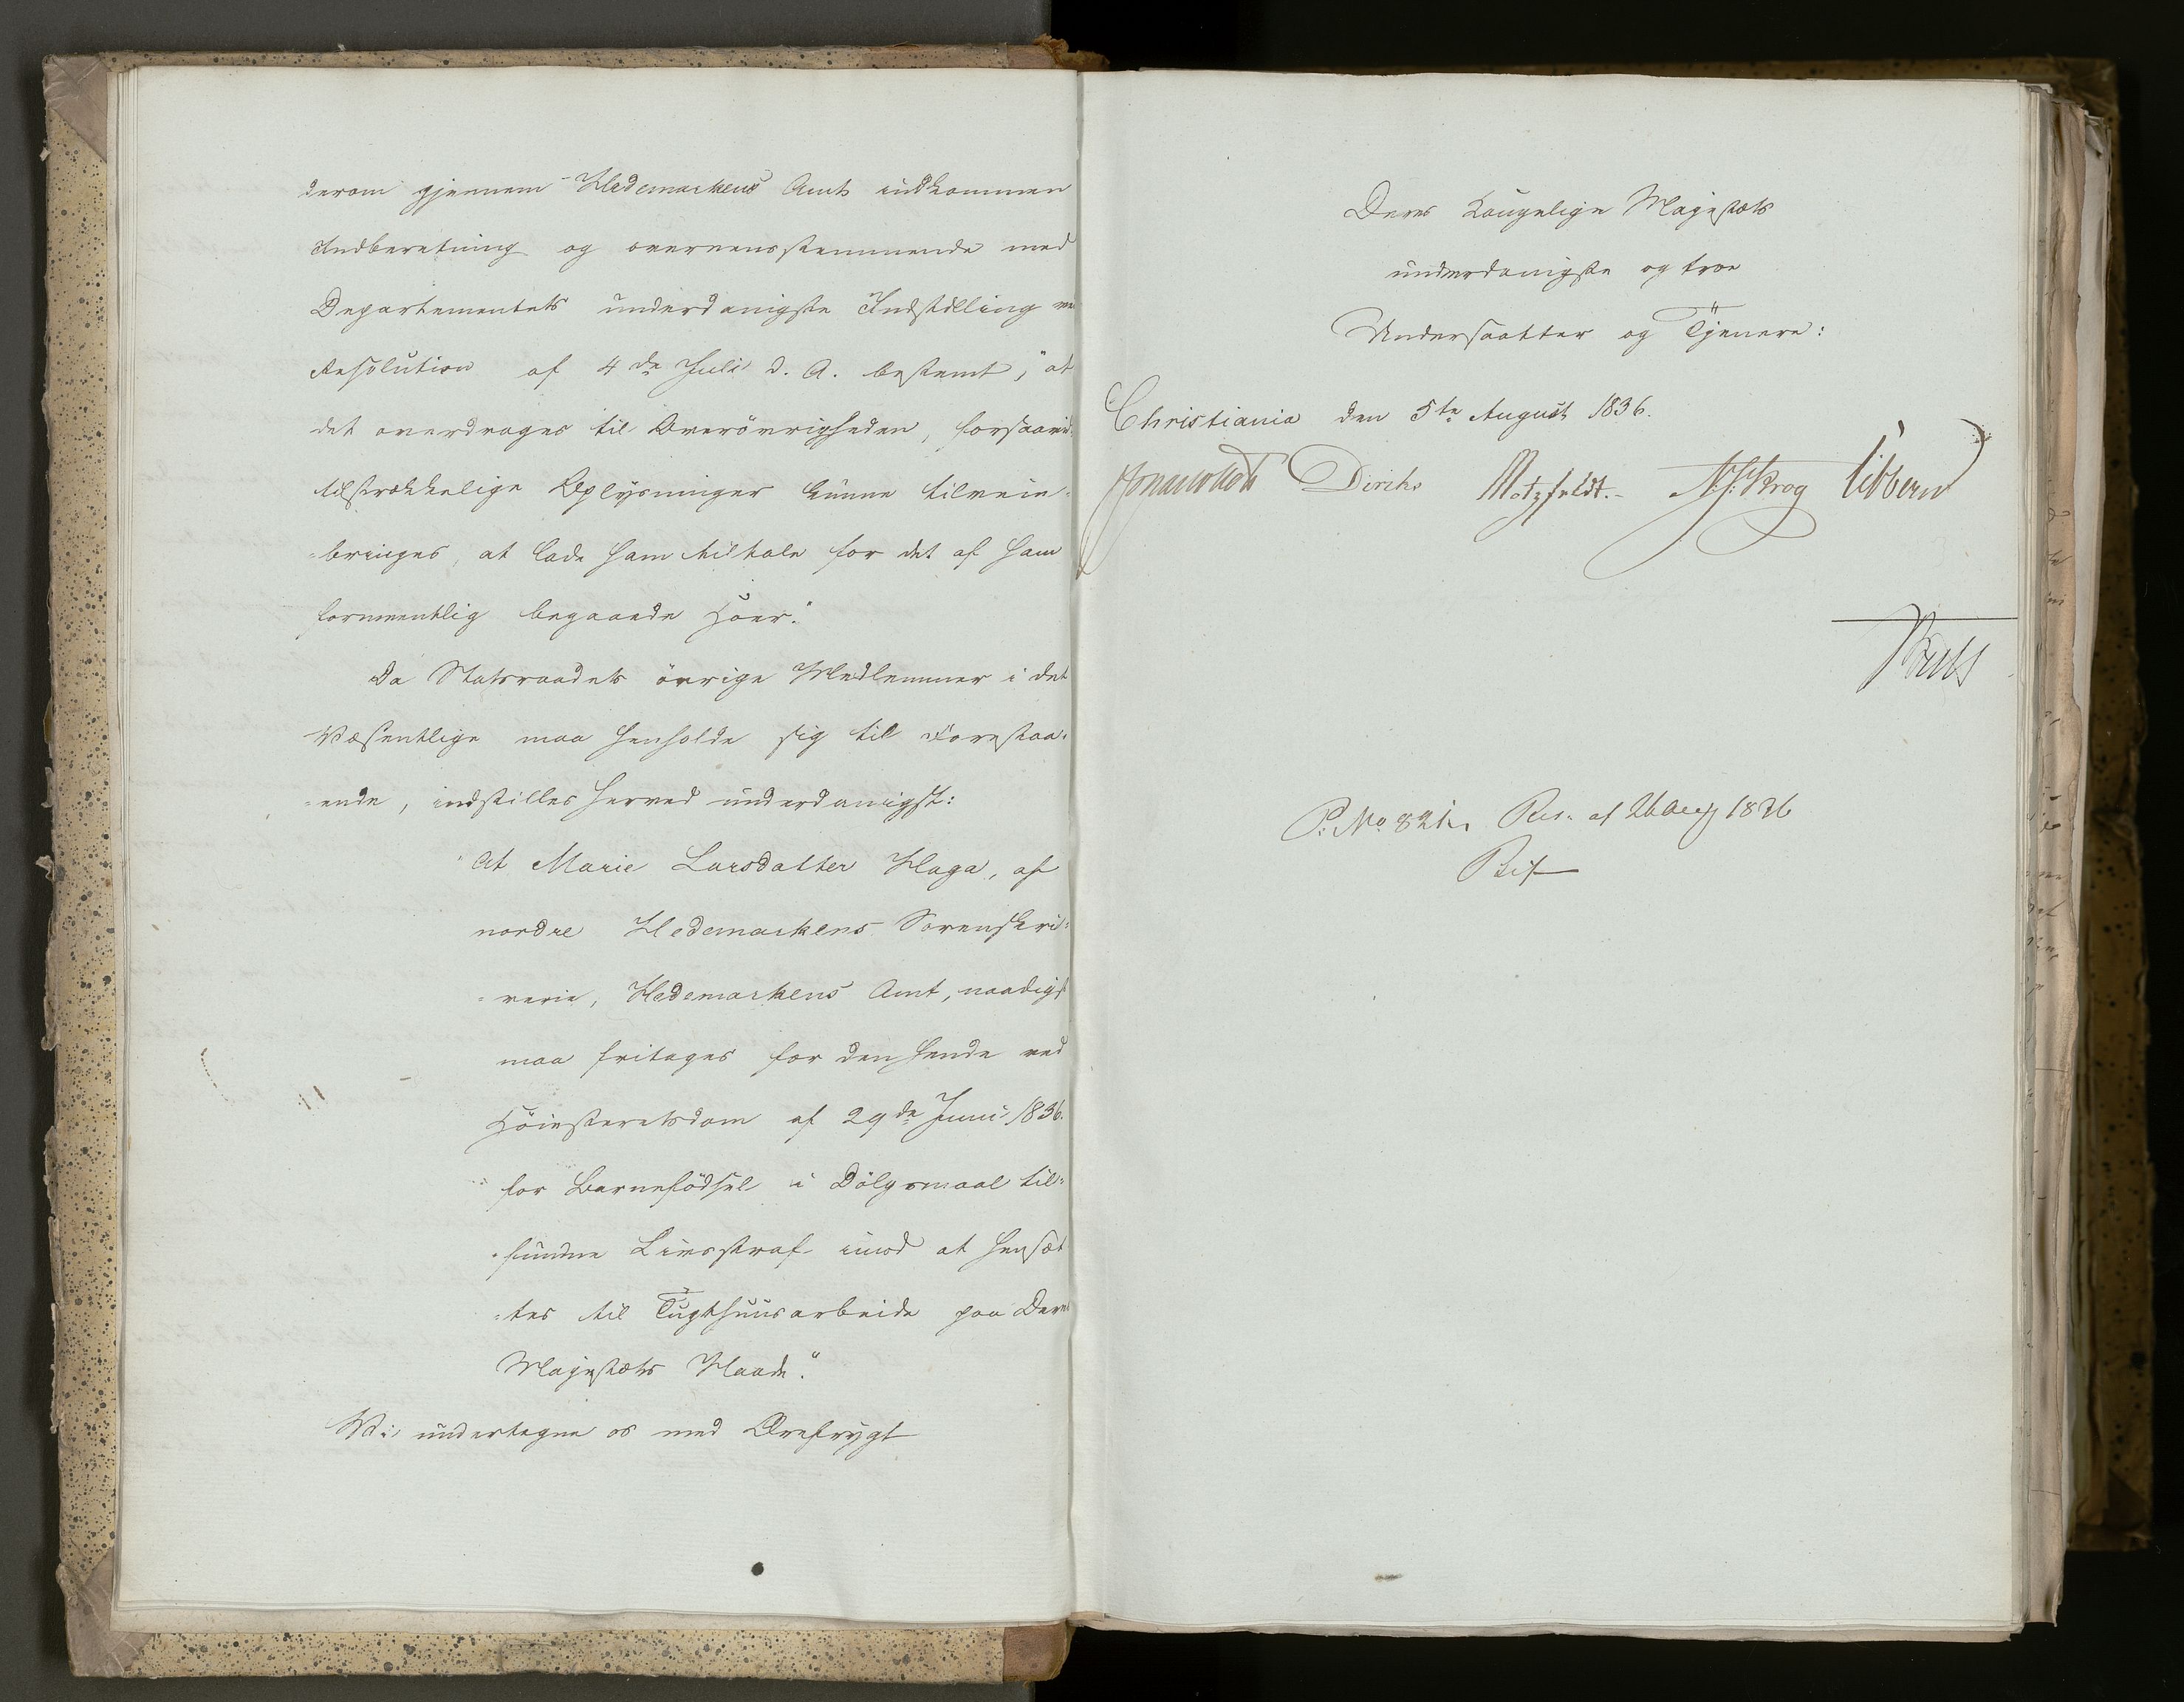 derom gjennem Hedemarkens Amt indkommen
Indberetning og overensstemmende med
Departementets underdanigste Indstilling ved
Resolution af 4de Juli d. A. bestemt, "at
det overdrages til Overövrigheden, forsaavidt
tilstrækkelige Oplysninger kunne tilveie-
-bringes, at lade ham tiltale for det af ham
formeentlig begaaede Hoer."
Da Statsraadets övrige Medlemmer i det
Væsentlige maa henholde sig til Forestaa-
-ende, indstilles herved underdanigst:
"At Marie Larsdatter Haga, af
nordre Hedemarkens Sorenskri-
-verie, Hedemarkens Amt, naadigst
maa fritages for den hende ved
Höiesteretsdom af 29de Juni 1836.
for Barnefödsel i Dölgsmaal til-
-fundne Livsstraf imod at hensæt-
-tes til Tugthuusarbeide paa Deres
Majestæts Naade."
Vi undertegne os med Ærefrygt
Deres Kongelige Majestæts
underdanigste og troe
Undersaatter og Tjenere:
Christiania den 5te August 1836.
Jonas Collett Diriks Motzfeldt. Krog Vibbern
P: No 821. Res. af 26 Aug 1836